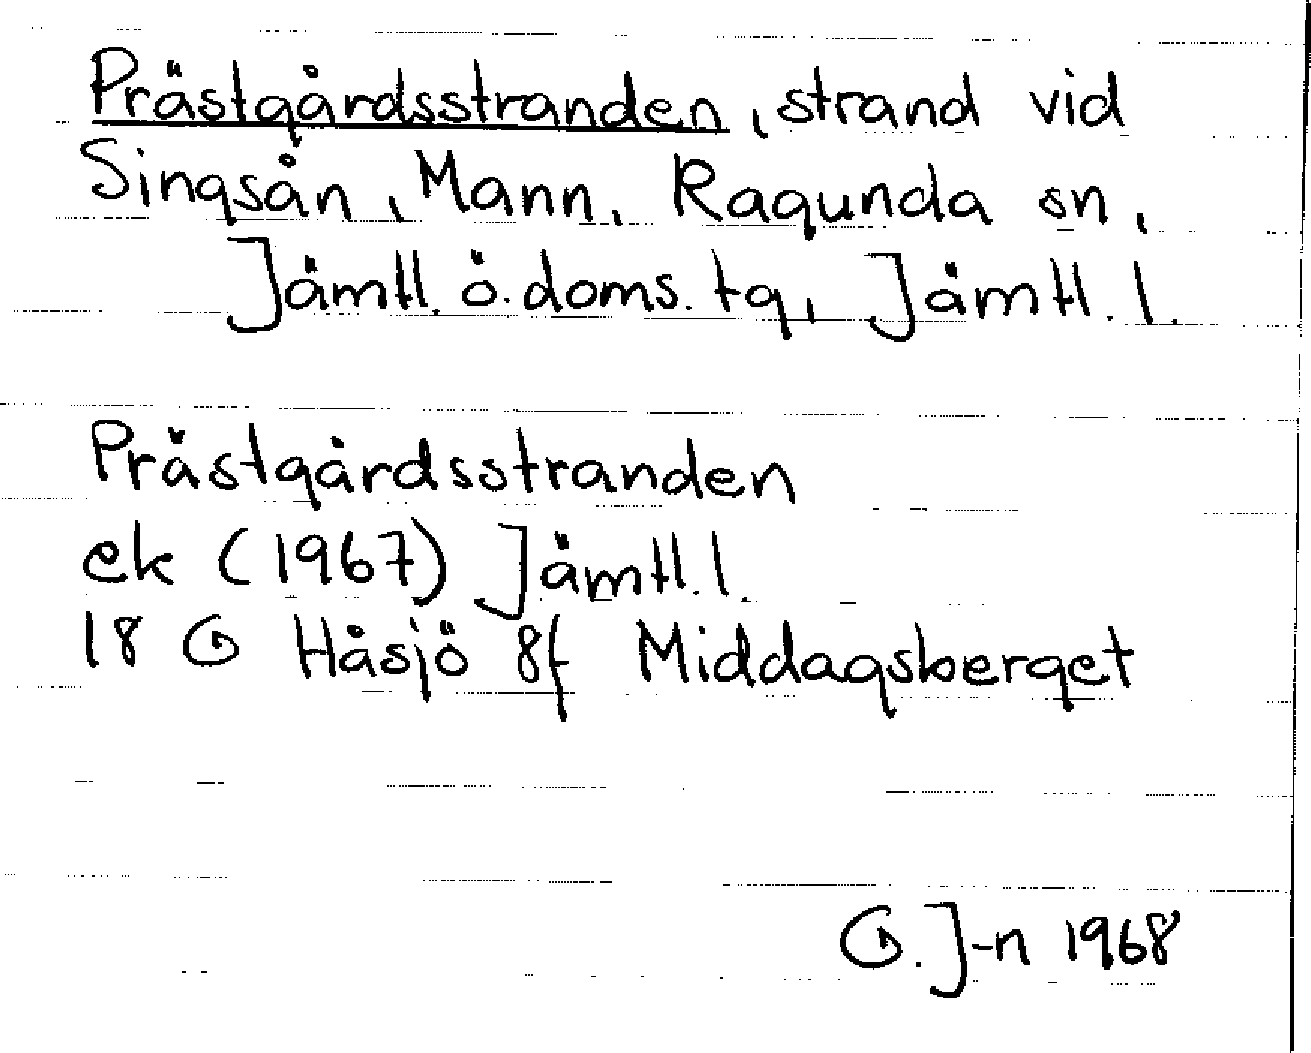 Prästgårdsstranden, strand vid
Singsån, Mann, Ragunda sn,
Jämtl. ö. doms. tg, Jämtl. l.
Prästgårdsstranden
ek (1967) Jämtl. l.
18 G Håsjö 8f Middagsberget
G. J-n 1968